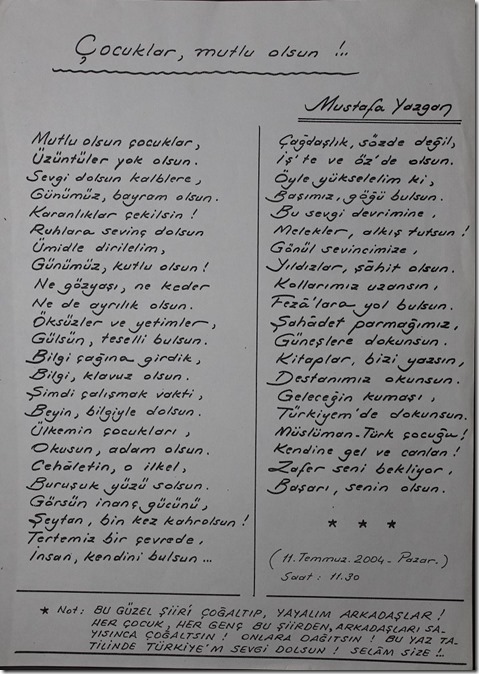 Çocuklar, mutlu olsun !..
Mustafa Yazgan
Mutlu olsun çocuklar,
Üzüntüler yok olsun.
Sevgi dolsun kalblere,
Günümüz, bayram olsun.
Karanlıklar çekilsin !
Ruhlara sevinç dolsun
Ümidle dirilelim,
Günümüz, kutlu olsun !
Ne gözyaşı, ne keder
Ne de ayrılık olsun.
Öksüzler ve yetimler,
Gülsün, teselli bulsun.
Bilgi çağına girdik,
Bilgi, klavuz olsun.
Şimdi çalışmak vakti,
Beyin, bilgiyle dolsun.
Ülkemin çocukları,
Okusun, adam olsun.
Cehâletin, o ilkel,
Buruşuk yüzü solsun.
Görsün inanç gücünü,
Şeytan, bin kez kahrolsun !
Tertemiz bir çevrede,
İnsan, kendini bulsun ...
Çağdaşlık, sözde değil,
İş'te ve öz'de olsun.
Öyle yükselelim ki,
Başımız, göğü bulsun.
Bu sevgi devrimine,
Melekler, alkış tutsun !
Gönül sevincimize,
Yıldızlar, şâhit olsun.
Kollarımız uzansın,
Fezâ'lara yol bulsun.
Şahâdet parmağımız,
Güneşlere dokunsun.
Kitaplar, bizi yazsın,
Destanımız okunsun.
Geleceğin kumaşı,
Türkiyem'de dokunsun.
Müslüman-Türk çocuğu !
Kendine gel ve canlan !
Zafer seni bekliyor,
Başarı, senin olsun.
* * *
(11. Temmuz. 2004 - Pazar.)
Saat : 11.30
* Not: BU GÜZEL ŞİİRİ ÇOĞALTIP, YAYALIM ARKADAŞLAR !
HER ÇOCUK, HER GENÇ BU ŞİİRDEN, ARKADAŞLARI SA-
YISINCA ÇOĞALTSIN ! ONLARA DAĞITSIN ! BU YAZ TA-
TİLİNDE TÜRKİYE'M SEVGİ DOLSUN ! SELÂM SİZE !..